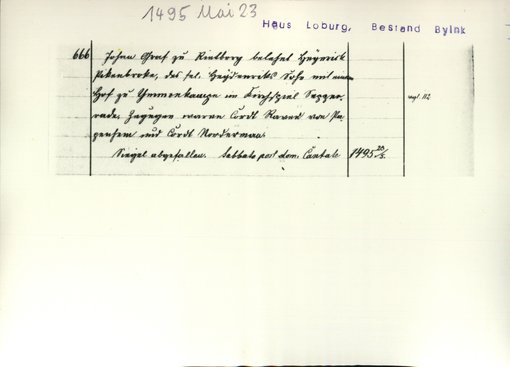 1495 Mai 23
Haus Loburg, Bestand Byink
666 Johan Graf zu Rietberg belehnt Heynrick
Pikenbroke, des sel. Heydenriks Sohn mit
Hof zu Ymmenkampe im Kirchspiel Seppen-
rade. Zeugen waren Cordt Ravend von Pa-
penhem und Cordt Norderman.
Siegel abgefallen. Sabbato post dom. Cantate 1495 23/5.
vgl. 112